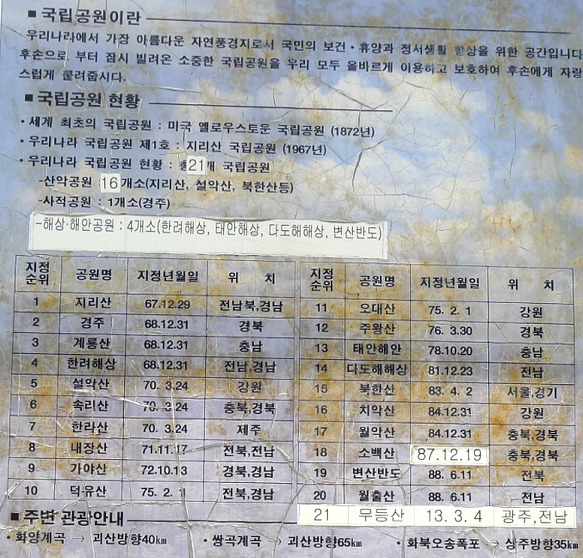 ■ 국립공원이란
우리나라에서 가장 아름다운 자연풍경지로서 국민의 보건·휴양과 정서생활 향상을 위한 공간입니다
후손으로 부터 잠시 빌려온 소중한 국립공원을 우리 모두 올바르게 이용하고 보호하여 후손에게 자랑
스럽게 물려줍시다.
■ 국립공원 현황
· 세계 최초의 국립공원 : 미국 옐로우스토운 국립공원 (1872년)
· 우리나라 국립공원 제1호 : 지리산 국립공원 (1967년)
· 우리나라 국립공원 현황 : 총21개 국립공원
-산악공원 16개소(지리산, 설악산, 북한산등)
-사적공원 : 1개소(경주)
-해상·해안공원 : 4개소(한려해상, 태안해상, 다도해해상, 변산반도)
지정순위 공원명 지정년월일 위 치
1 지리산 67.12.29 전남북,경남
2 경주 68.12.31 경북
3 계룡산 68.12.31 충남
4 한려해상 68.12.31 전남,경남
5 설악산 70. 3.24 강원
6 속리산 70. 3.24 충북,경북
7 한라산 70. 3.24 제주
8 내장산 71.11.17 전북,전남
9 가야산 72.10.13 경북,경남
10 덕유산 75. 2. 1 전북,경남
지정순위 공원명 지정년월일 위 치
11 오대산 75. 2. 1 강원
12 주왕산 76. 3.30 경북
13 태안해안 78.10.20 충남
14 다도해해상 81.12.23 전남
15 북한산 83. 4. 2 서울,경기
16 치악산 84.12.31 강원
17 월악산 84.12.31 충북,경북
18 소백산 87.12.19 충북,경북
19 변산반도 88. 6.11 전북
20 월출산 88. 6.11 전남
21 무등산 13.3.4 광주,전남
■ 주변 관광안내
· 화양계곡 → 괴산방향40km · 쌍곡계곡 → 괴산방향65km · 화북오송폭포 → 상주방향35km